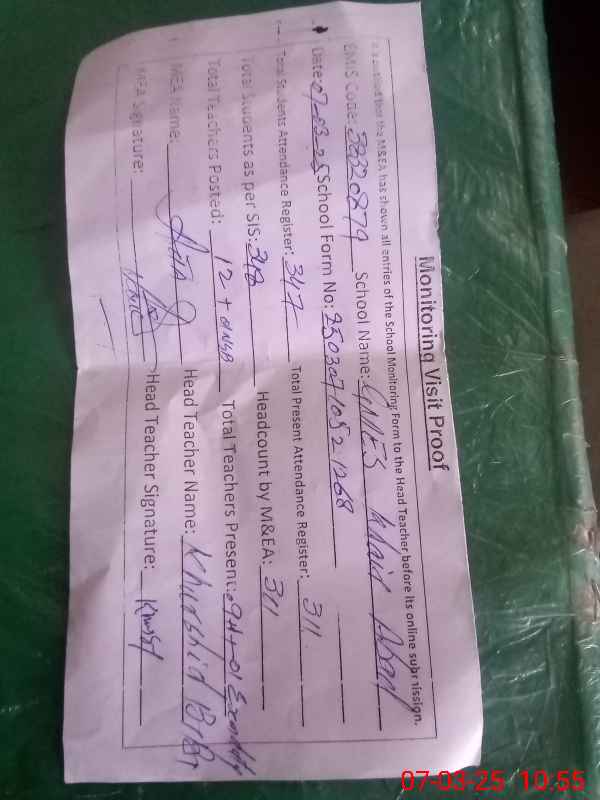 Monitoring Visit Proof
It is certified that the M&EA has shown all entries of the School Monitoring Form to the Head Teacher before its online submission.
EMIS Code: 32320879 School Name: GMES Khair Abad
Date: 07-03-25 School Form No: 2503071052 1268
Total Students Attendance Register: 347 Total Present Attendance Register: 311
Total Students as per SIS: 348 Headcount by M&EA: 311
Total Teachers Posted: 12 + Total Teachers Present: 09 + 01
MEA Name: Head Teacher Name: Khurshid BiBi
MEA Signature: Head Teacher Signature:
07-03-25 10:55